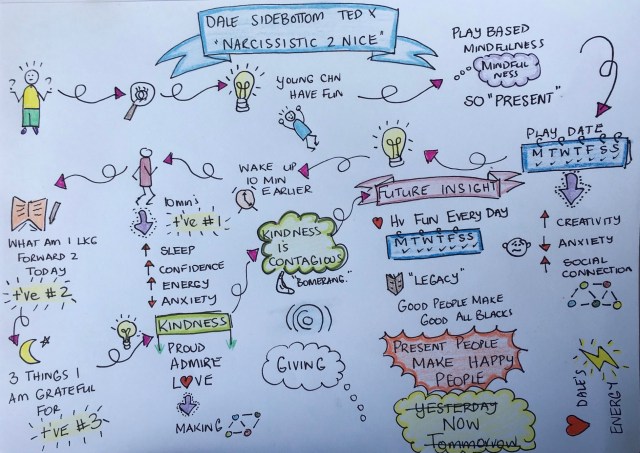 DALE SIDEBOTTOM TED X
"NARCISSISTIC 2 NICE"
YOUNG CHN
HAVE FUN
PLAY BASED
MINDFULNESS
MINDFUL
NESS
SO "PRESENT"
PLAY DATE
M T W T F S S
CREATIVITY
ANXIETY
SOCIAL
CONNECTION
WAKE UP
10 MIN
EARLIER
10 min's
+'ve #1
SLEEP
CONFIDENCE
ENERGY
ANXIETY
WHAT AM I LKG
FORWARD 2
TODAY
+'ve #2
3 THINGS I
AM GRATEFUL
FOR
+'ve #3
KINDNESS
PROUD
ADMIRE
LOVE
MAKING
KINDNESS
IS
CONTAGIOUS
"BOMERANG."
GIVING
FUTURE INSIGHT
HV FUN EVERY DAY
M T W T F S S
"LEGACY"
GOOD PEOPLE MAKE
GOOD ALL BLACKS
PRESENT PEOPLE
MAKE HAPPY
PEOPLE
YESTERDAY
NOW
Tommorrow
DALE'S
ENERGY